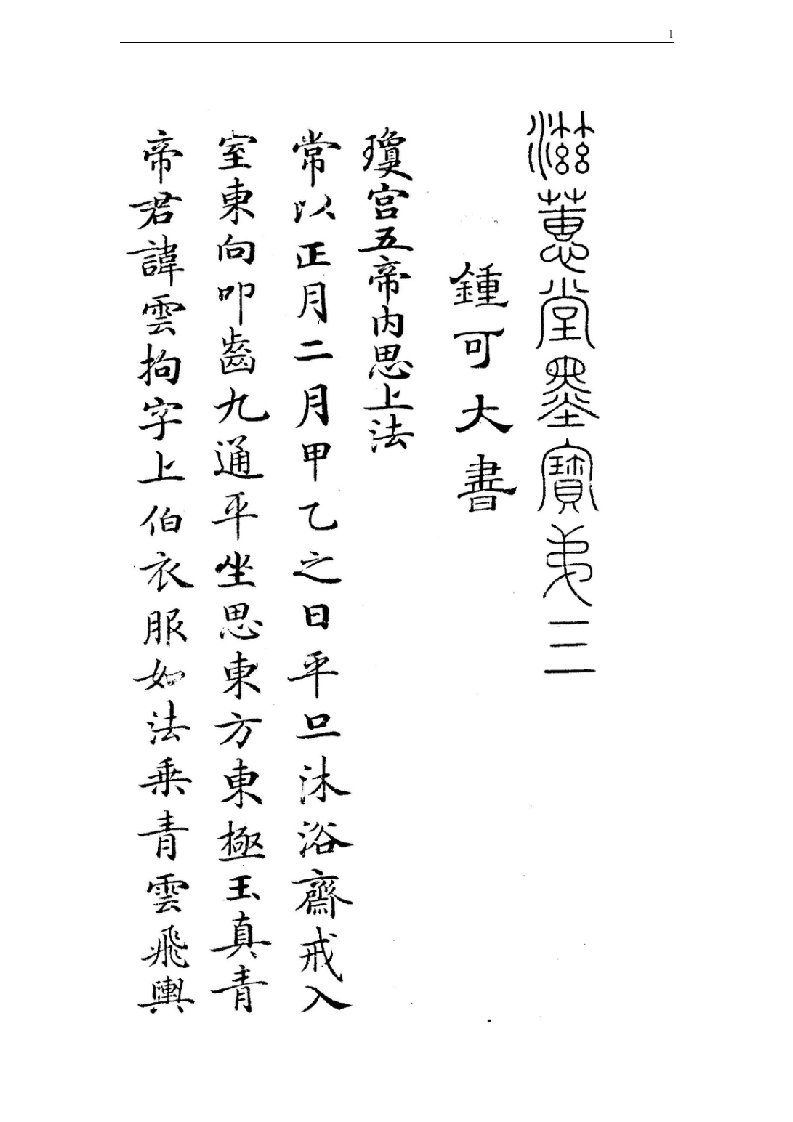 1
滋蕙堂墨寶弟三
鍾可大書
瓊宮五帝內思上法
常以正月二月甲乙之日平旦沐浴齋戒入
室東向叩齒九通平坐思東方東極玉真青
帝君諱雲拘字上伯衣服如法乘青雲飛輿